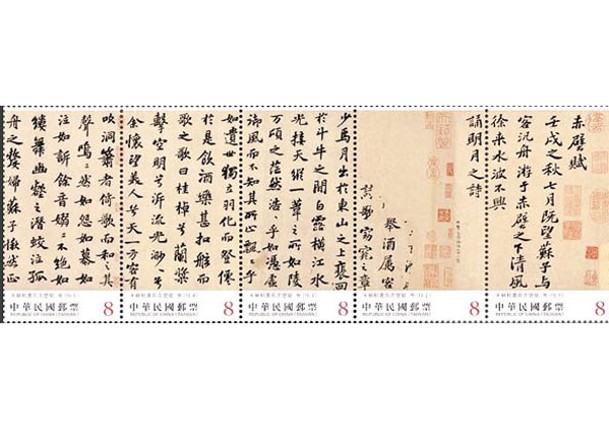 赤壁賦
壬戌之秋七月既望蘇子與
客汎舟游于赤壁之下清風
徐來水波不興
誦明月之詩
舉酒屬客
歌窈窕之章
少焉月出於東山之上裵回
於斗牛之間白露橫江水
光接天縱一葦之所如陵
萬頃之茫然浩〻乎如憑虛
御風而不知其所止飄〻乎
如遺世獨立羽化而登僊
於是飲酒樂甚扣舷而
歌之歌曰桂棹兮蘭槳
擊空明兮泝流光渺〻兮
余懷望美人兮天一方客有
吹洞簫者倚歌而和之其
聲嗚〻然如怨如慕如
泣如訴餘音嫋〻不絶如
縷舞幽壑之潛蛟泣孤
舟之嫠婦蘇子愀然正
中華民國郵票 8
REPUBLIC OF CHINA (TAIWAN)
中華民國郵票 8
REPUBLIC OF CHINA (TAIWAN)
中華民國郵票 8
REPUBLIC OF CHINA (TAIWAN)
中華民國郵票 8
REPUBLIC OF CHINA (TAIWAN)
中華民國郵票 8
REPUBLIC OF CHINA (TAIWAN)